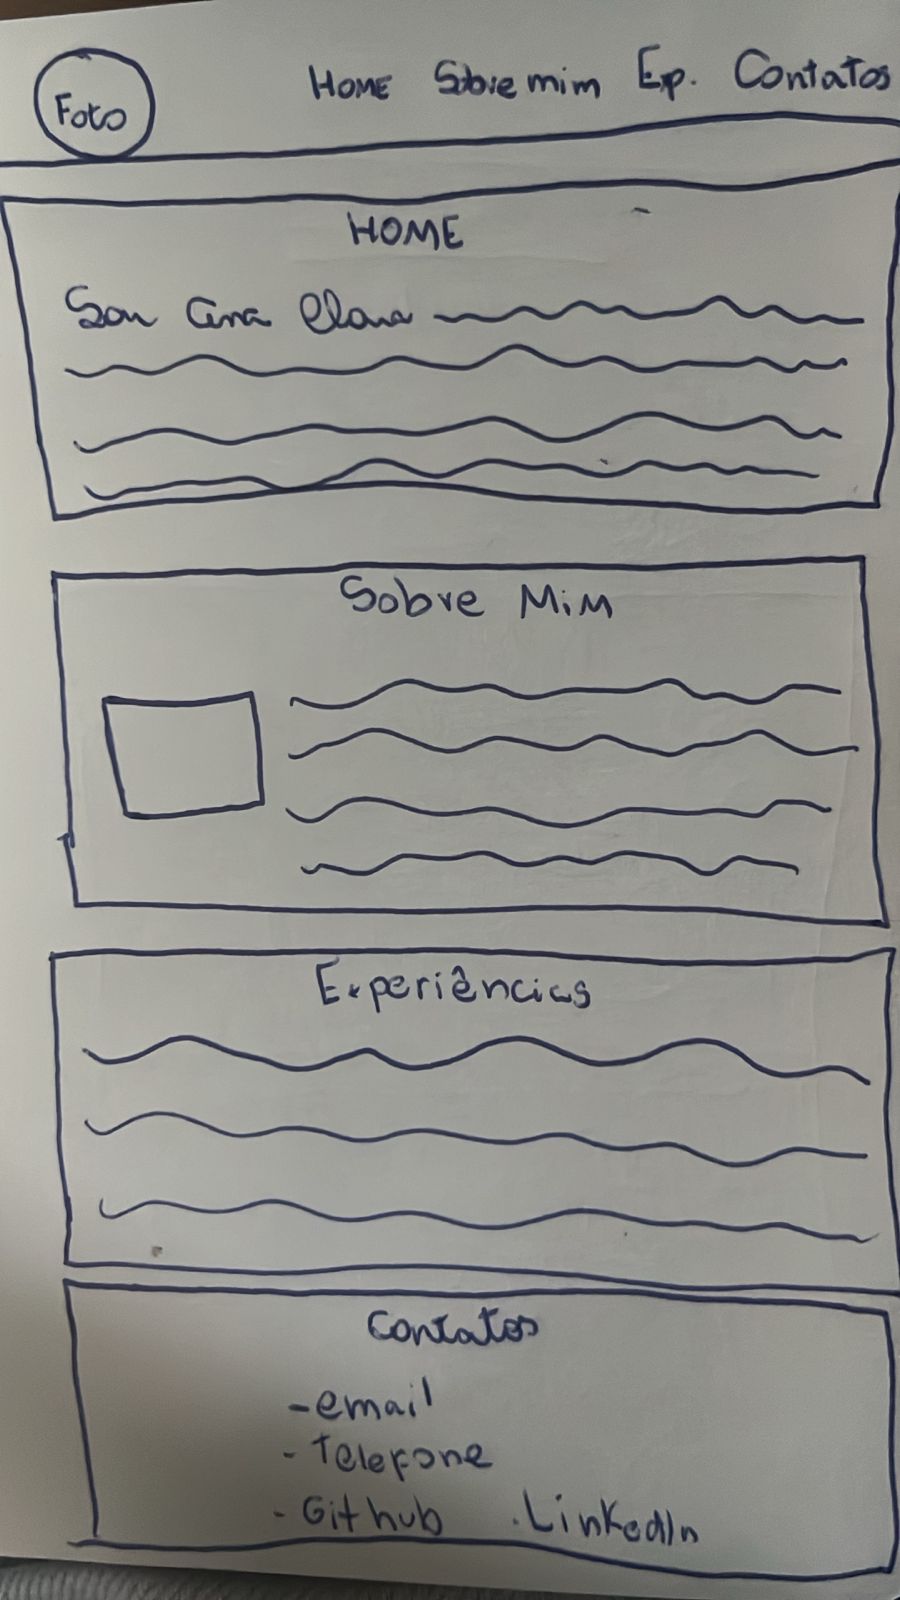 Foto
Home Sobre mim Exp. Contatos
HOME
Sou Ana Clara
Sobre Mim
Experiências
Contatos
- email
- Telefone
- Github . LinkedIn